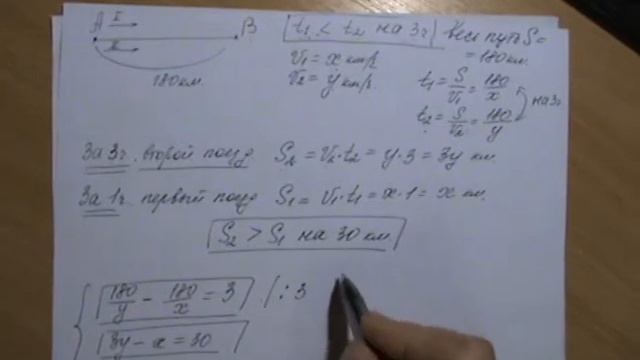 I
A B
II
180 км.
t₁ < t₂ на 3ч
Весь путь S =
= 180 км.
V₁ = x км/ч
V₂ = y км/ч.
t₁ = S/V₁ = 180/x
t₂ = S/V₂ = 180/y
на 3ч
За 3ч. второй поезд S₂ = V₂·t₂ = y·3 = 3y км.
За 1ч. первый поезд S₁ = V₁·t₁ = x·1 = x км.
S₂ > S₁ на 30 км.
180/y − 180/x = 3 | : 3
3y − x = 30